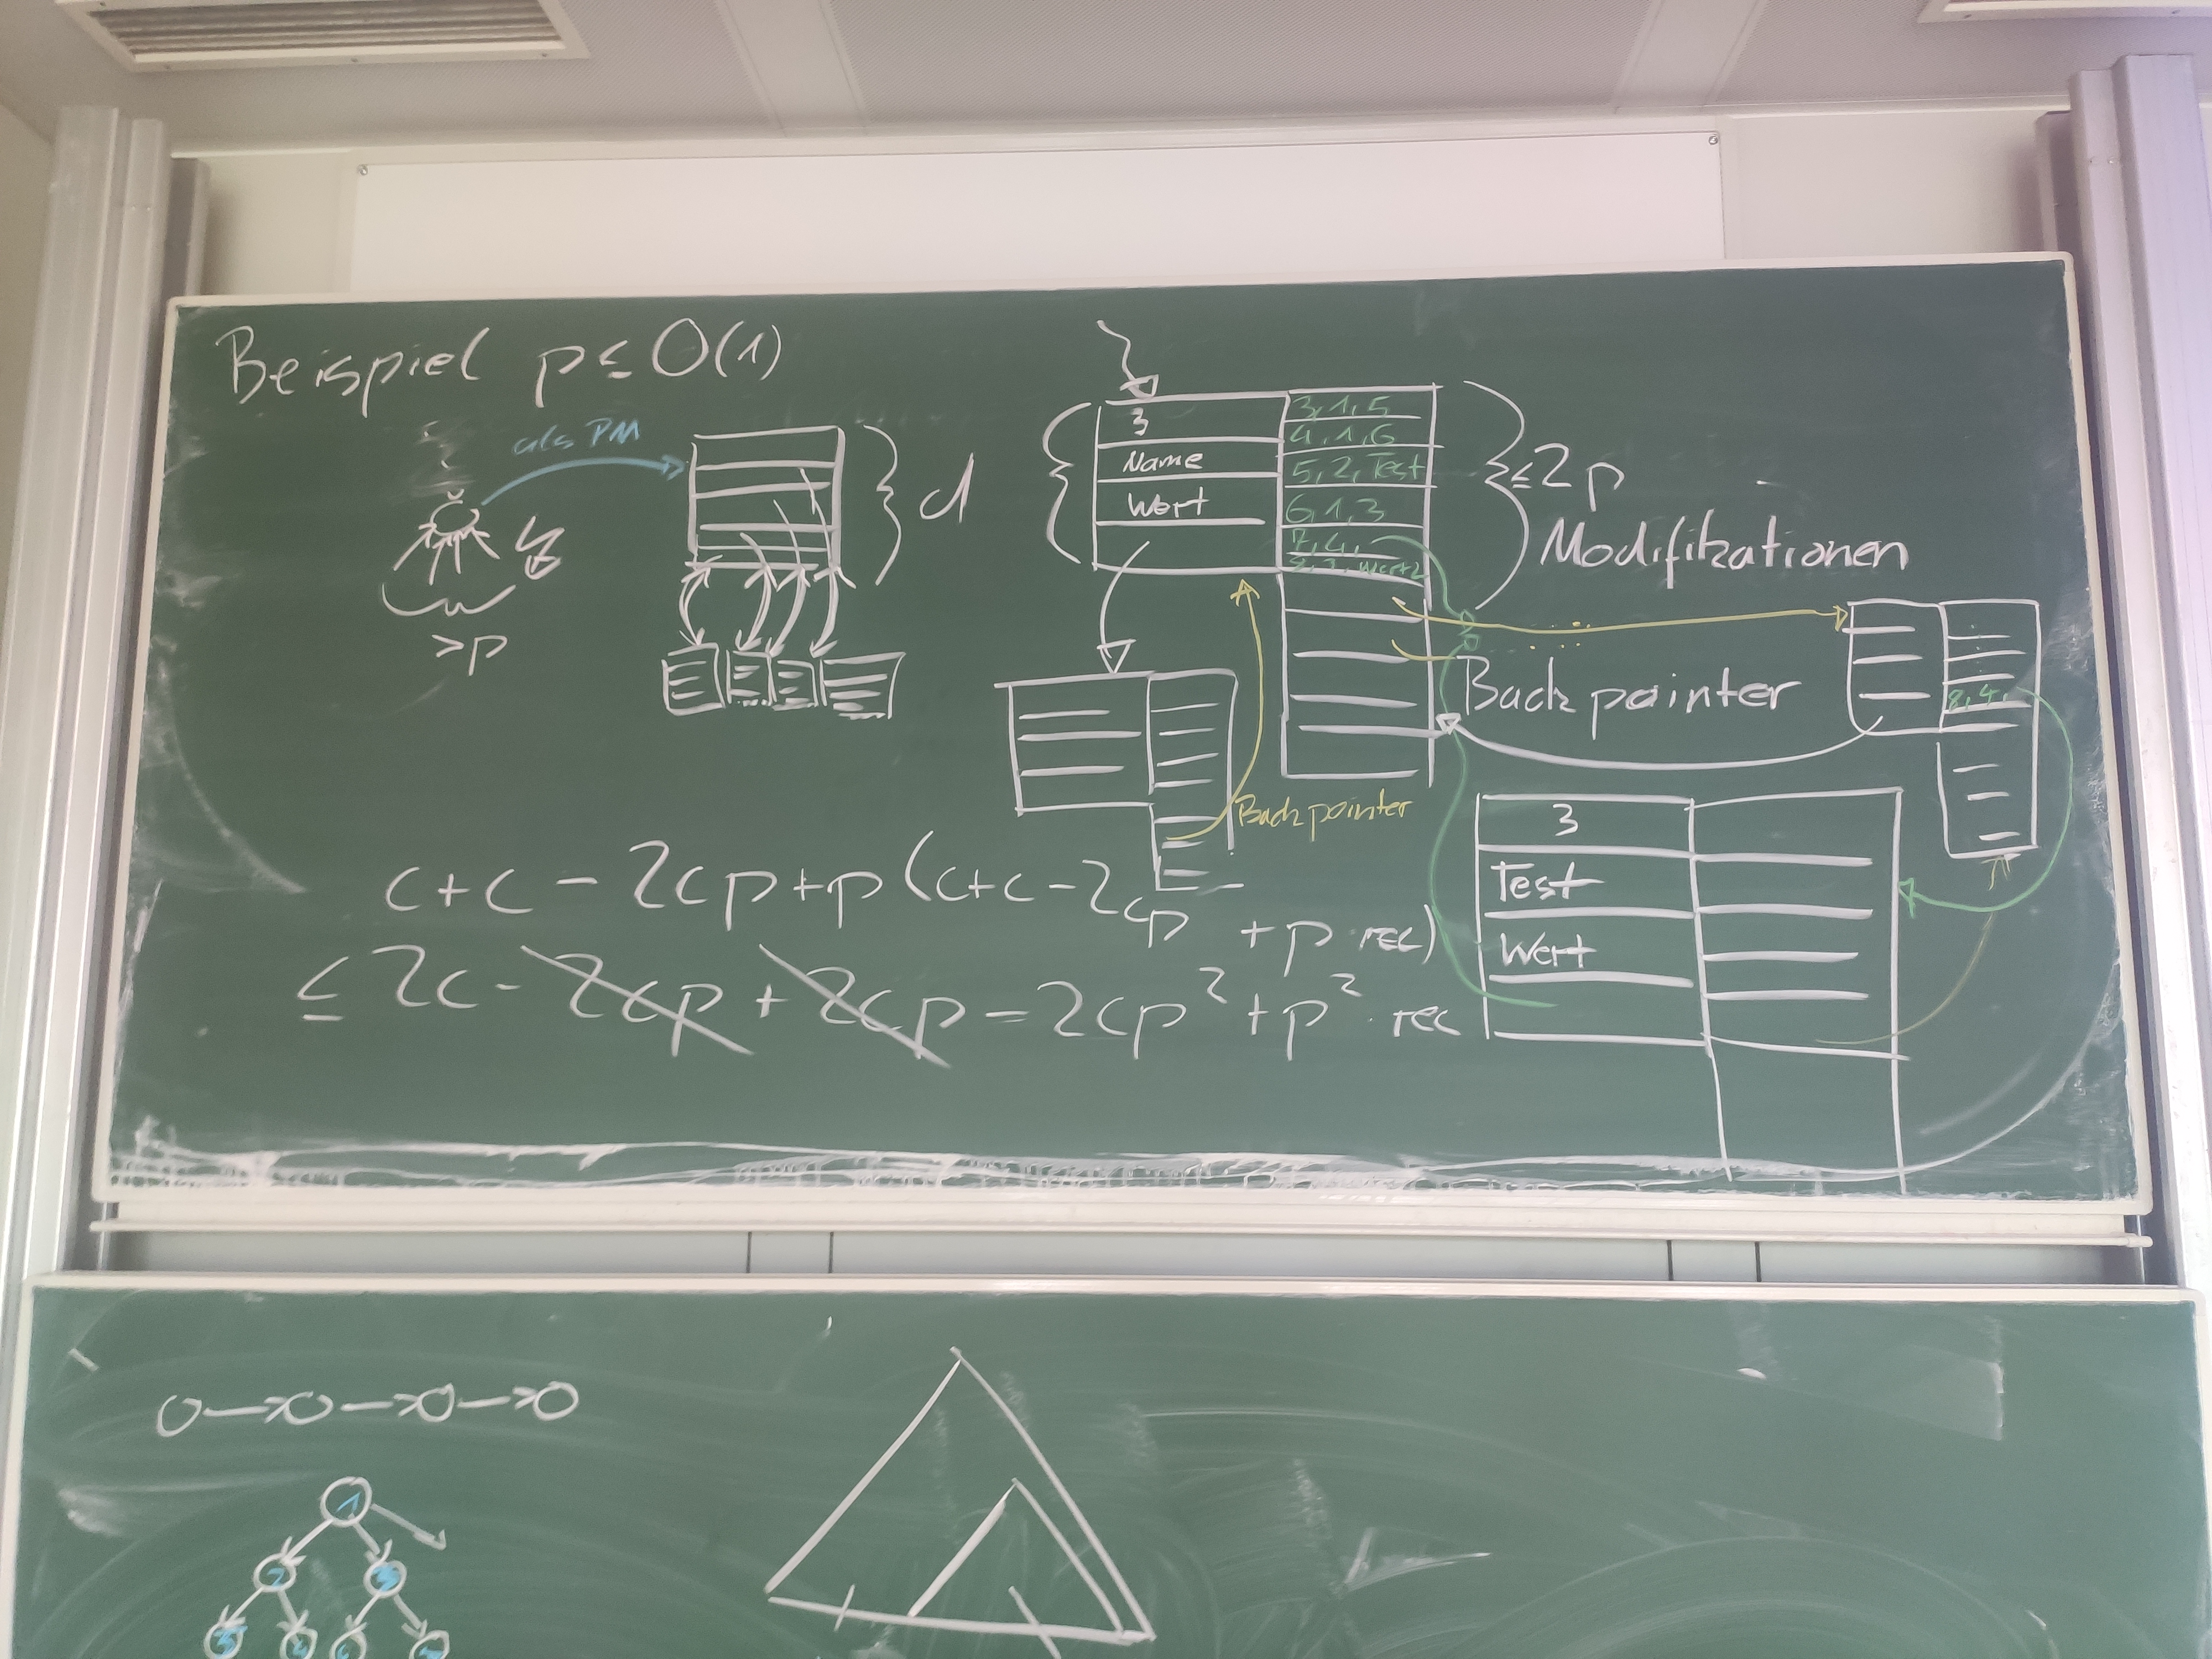 Beispiel p ≤ O(1)
als PM
> p
d
3
Name
Wert
3, 1, 5
4, 1, 6
5, 2, Test
6, 1, 3
7, 4,
≤ 2p
Modifikationen
Backpointer
8, 4,
Backpointer
3
Test
Wert
c + c - 2cp + p (c + c - 2cp + p · rec)
≤ 2c - 2cp + 2cp - 2cp² + p² · rec
1
2
3